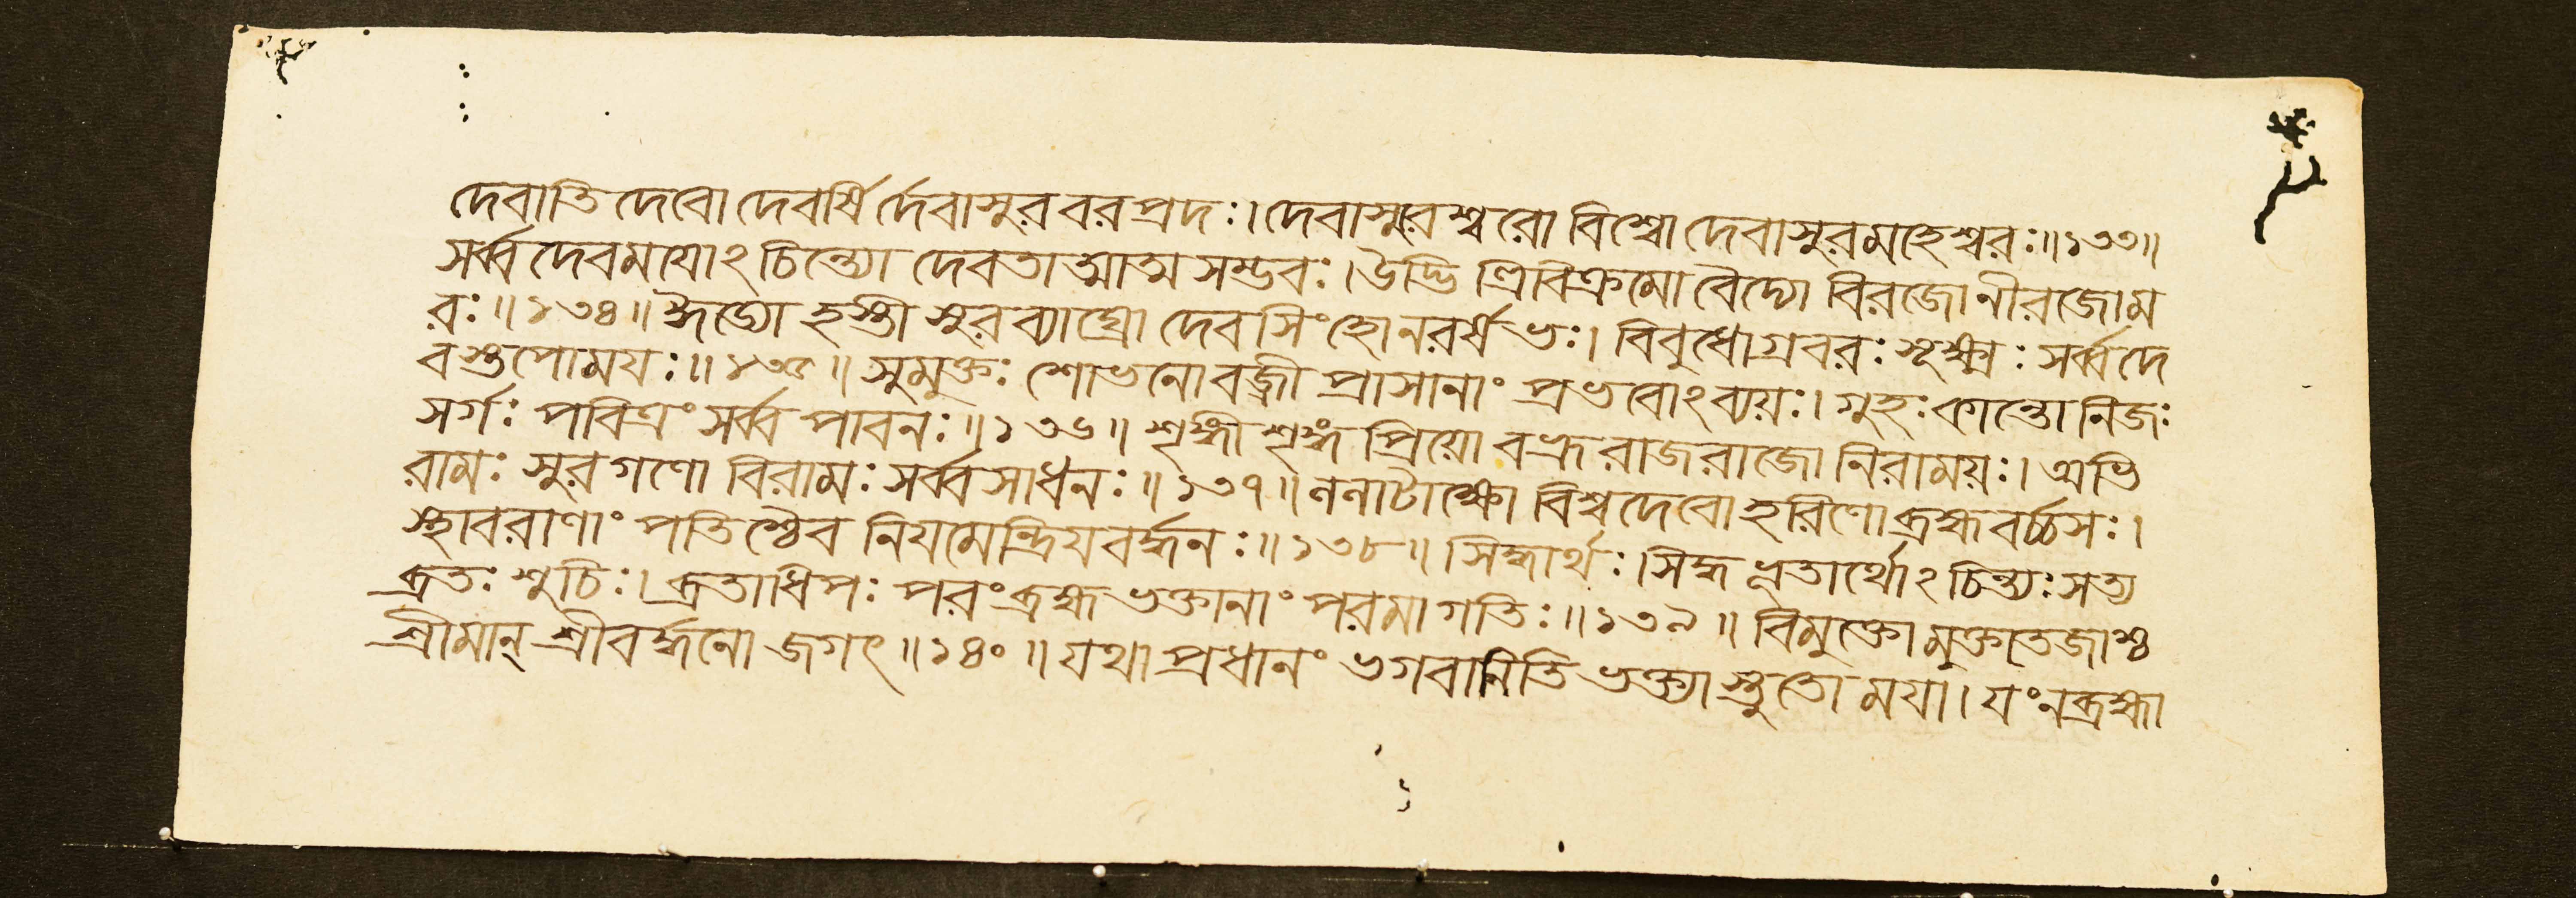 দেবাতি দেবো দেবর্ষি র্দেবাসুর বর প্রদঃ। দেবাসুরশ্বরো বিশ্বো দেবাসুরমহেশ্বরঃ॥১৩৩॥
সর্ব্ব দেবময়োঽ চিন্ত্যো দেবতা আত্ম সম্ভবঃ। উদ্ভি ত্রিবিক্রমো বৈদ্যো বিরজোনীরজোম
রঃ॥১৩৪॥ ঈড্যো হস্তী সুর ব্যাঘ্রো দেব সিংহোনরর্ষভঃ। বিবুধোগ্রবরঃ সূক্ষ্মঃ সর্ব্বদে
বস্তপোময়ঃ॥১৩৫॥ সুযুক্তঃ শোভনোবজ্রী প্রাসানাং প্রভবোঽব্যয়ঃ। গুহঃ কান্তো নিজঃ
সর্গঃ পবিত্রং সর্ব্ব পাবনঃ॥১৩৬॥ শৃঙ্গী শৃঙ্গ প্রিয়ো বভ্রূ রাজরাজো নিরাময়ঃ। অভি
রামঃ সুর গণো বিরামঃ সর্ব্ব সাধনঃ॥১৩৭॥ ললাটাক্ষো বিশ্বদেবো হরিণোব্রহ্মবর্চ্চসঃ।
স্থাবরাণাং পতিশ্চৈব নিয়মেন্দ্রিয়বর্দ্ধনঃ॥১৩৮॥ সিদ্ধার্থঃ। সিদ্ধ ভূতার্থোঽ চিন্ত্যঃ সত্য
ব্রতঃ শুচিঃ। ব্রতাধিপঃ পরংব্রহ্ম ভক্তানাং পরমা গতিঃ॥১৩৯॥ বিমুক্তো মুক্ততেজাশ্চ
শ্রীমান্ শ্রীবর্দ্ধনো জগৎ॥১৪০॥ যথা প্রধানং ভগবানিতি ভক্ত্যা স্তুতো ময়া। যংনব্রহ্মা